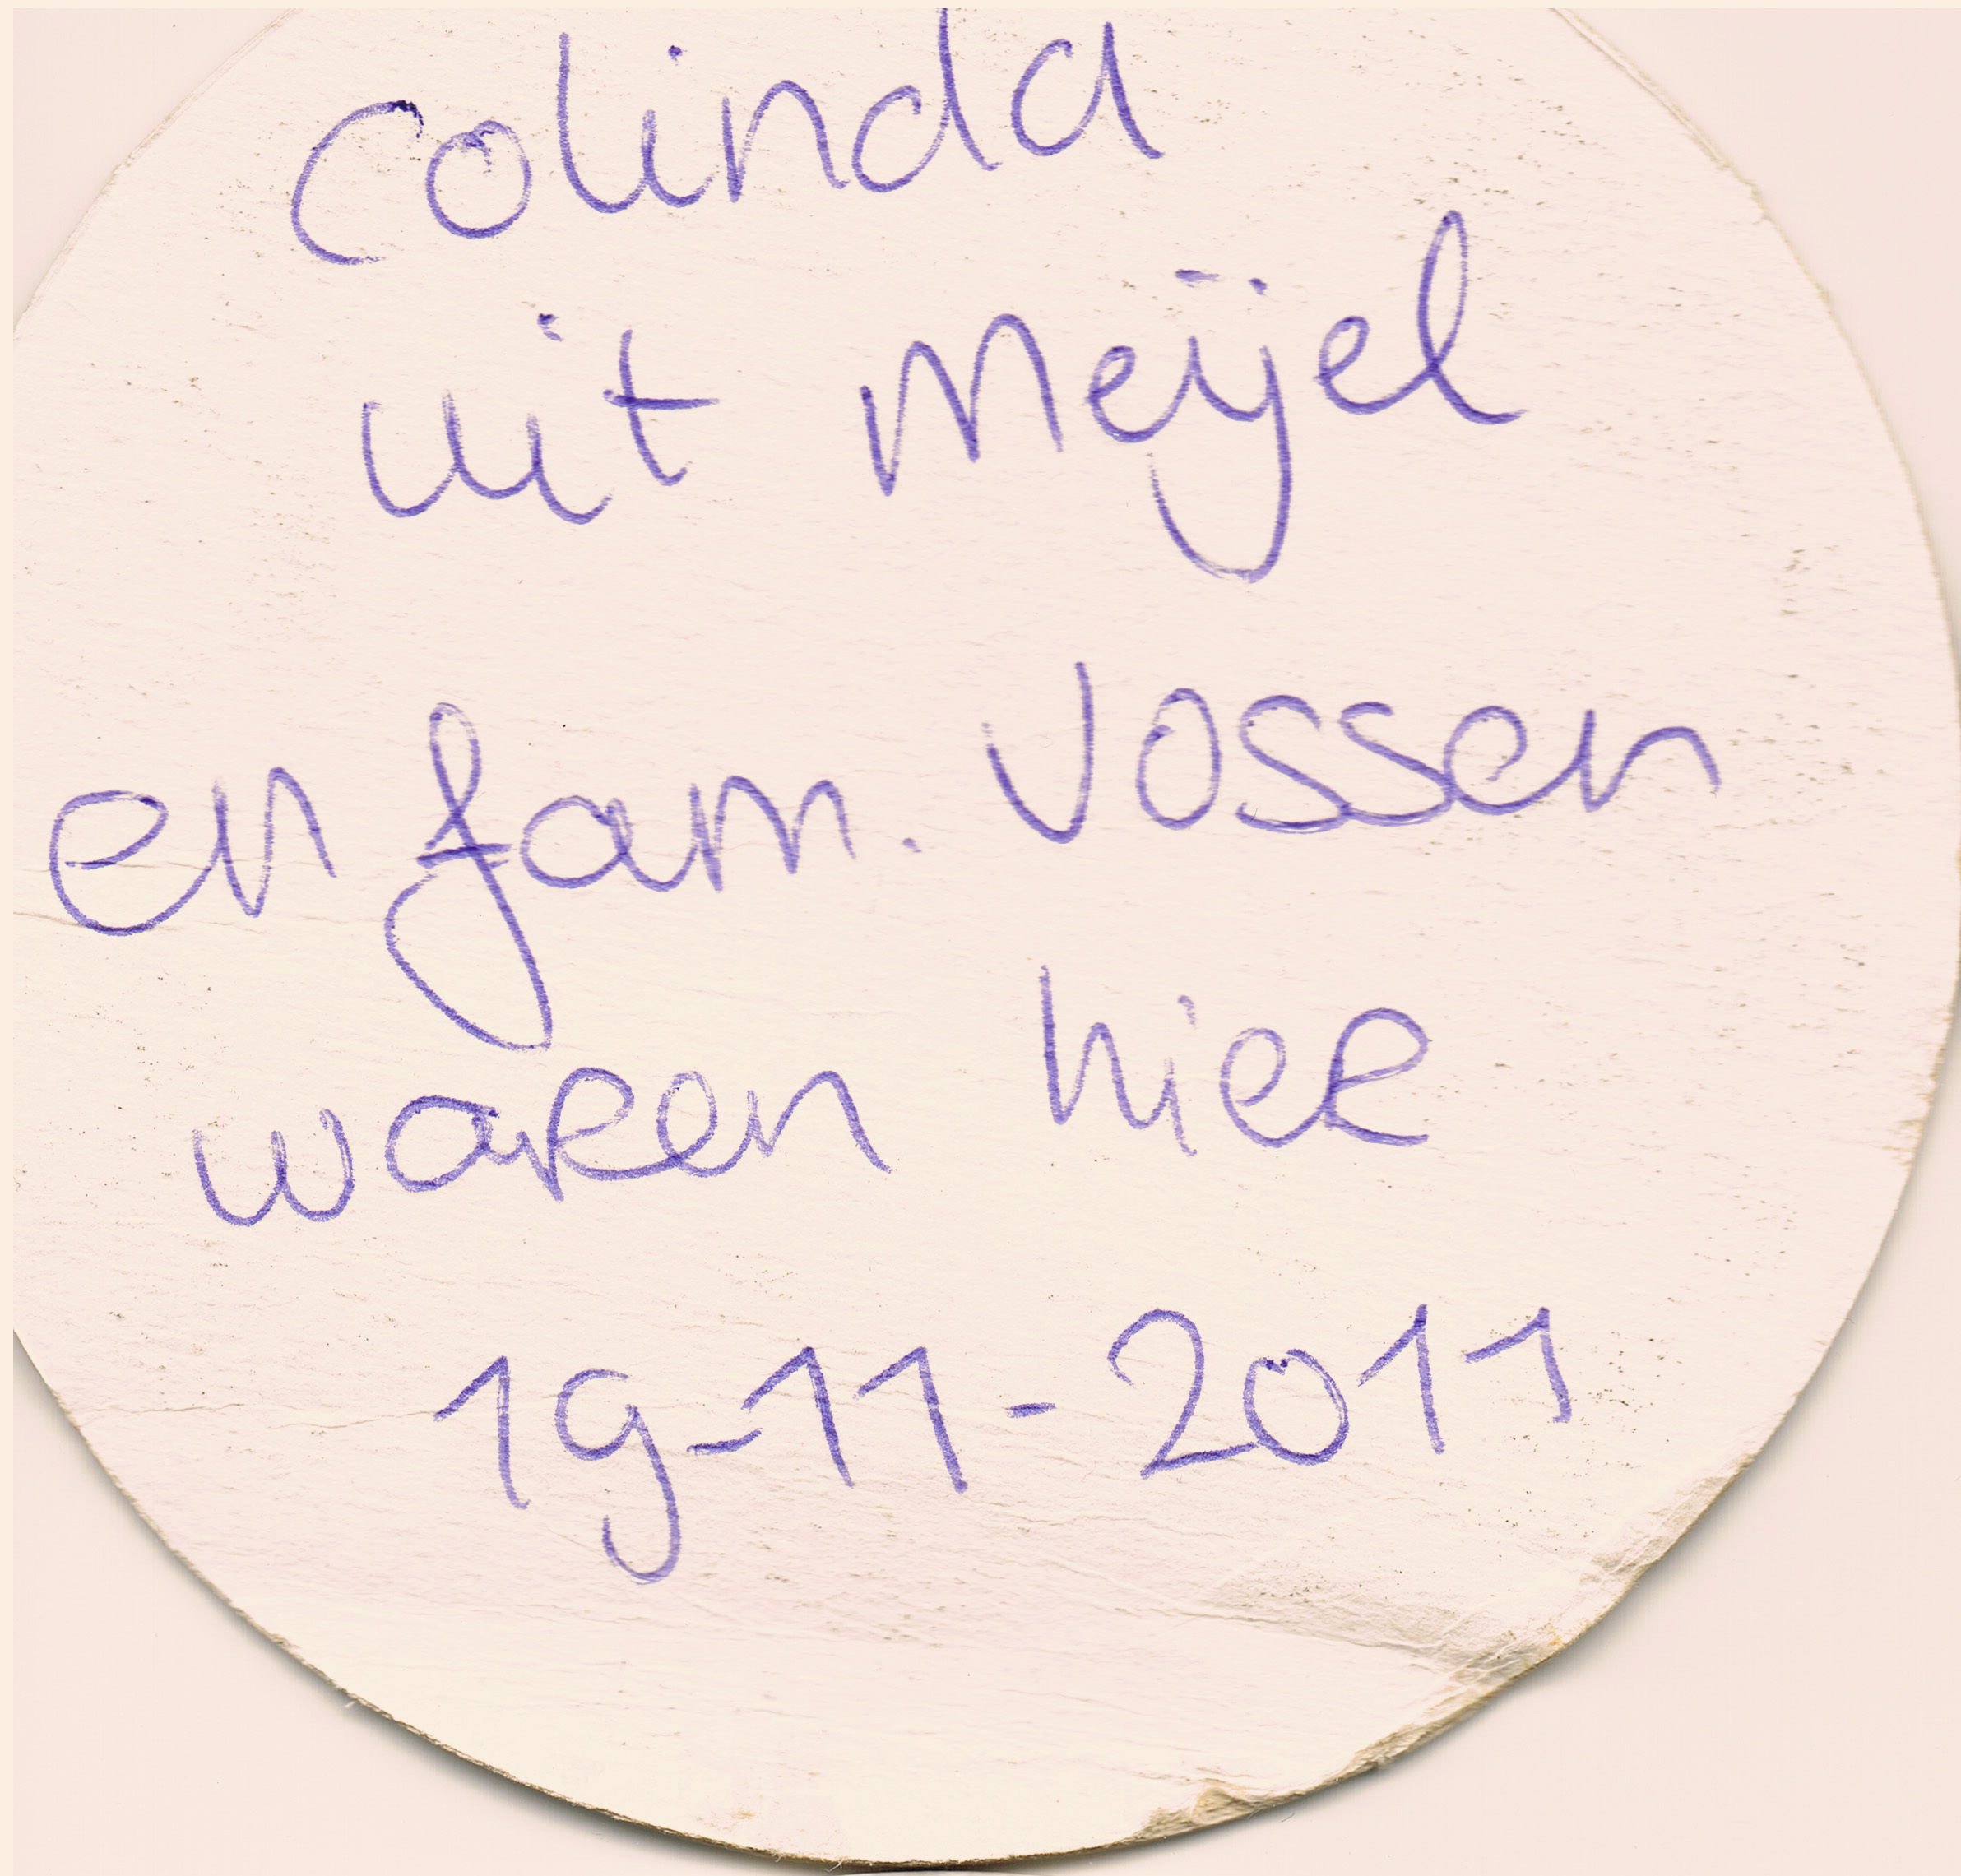 Colinda
uit Meijel
en fam. Vossen
waren hier
19-11-2011